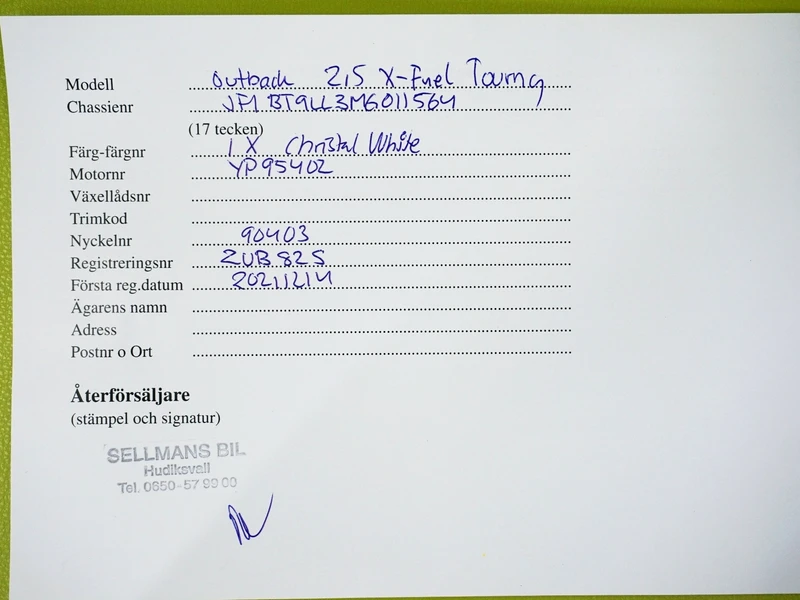 Modell Outback 2,5 X-Fuel Touring
Chassienr JF1BT9LL3MG011564
(17 tecken)
Färg-färgnr 1X Christal White
Motornr YP95402
Växellådsnr
Trimkod
Nyckelnr 90403
Registreringsnr ZUB82S
Första reg.datum 20211214
Ägarens namn
Adress
Postnr o Ort
Återförsäljare
(stämpel och signatur)
SELLMANS BIL
Hudiksvall
Tel. 0650-57 99 00